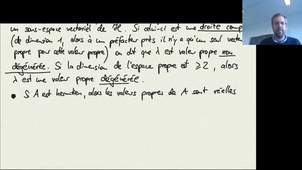 un sous-espace vectoriel de H. Si celui-ci est une droite comp
(de dimension 1, alors à un préfacteur près il n'y a qu'un seul vecteur
propre pour cette valeur propre) on dit que λ est valeur propre non
dégénérée. Si la dimension de l'espace propre est ≥ 2, alors
λ est une valeur propre dégénérée.
• Si A est hermitien, alors les valeurs propres de A sont réelles